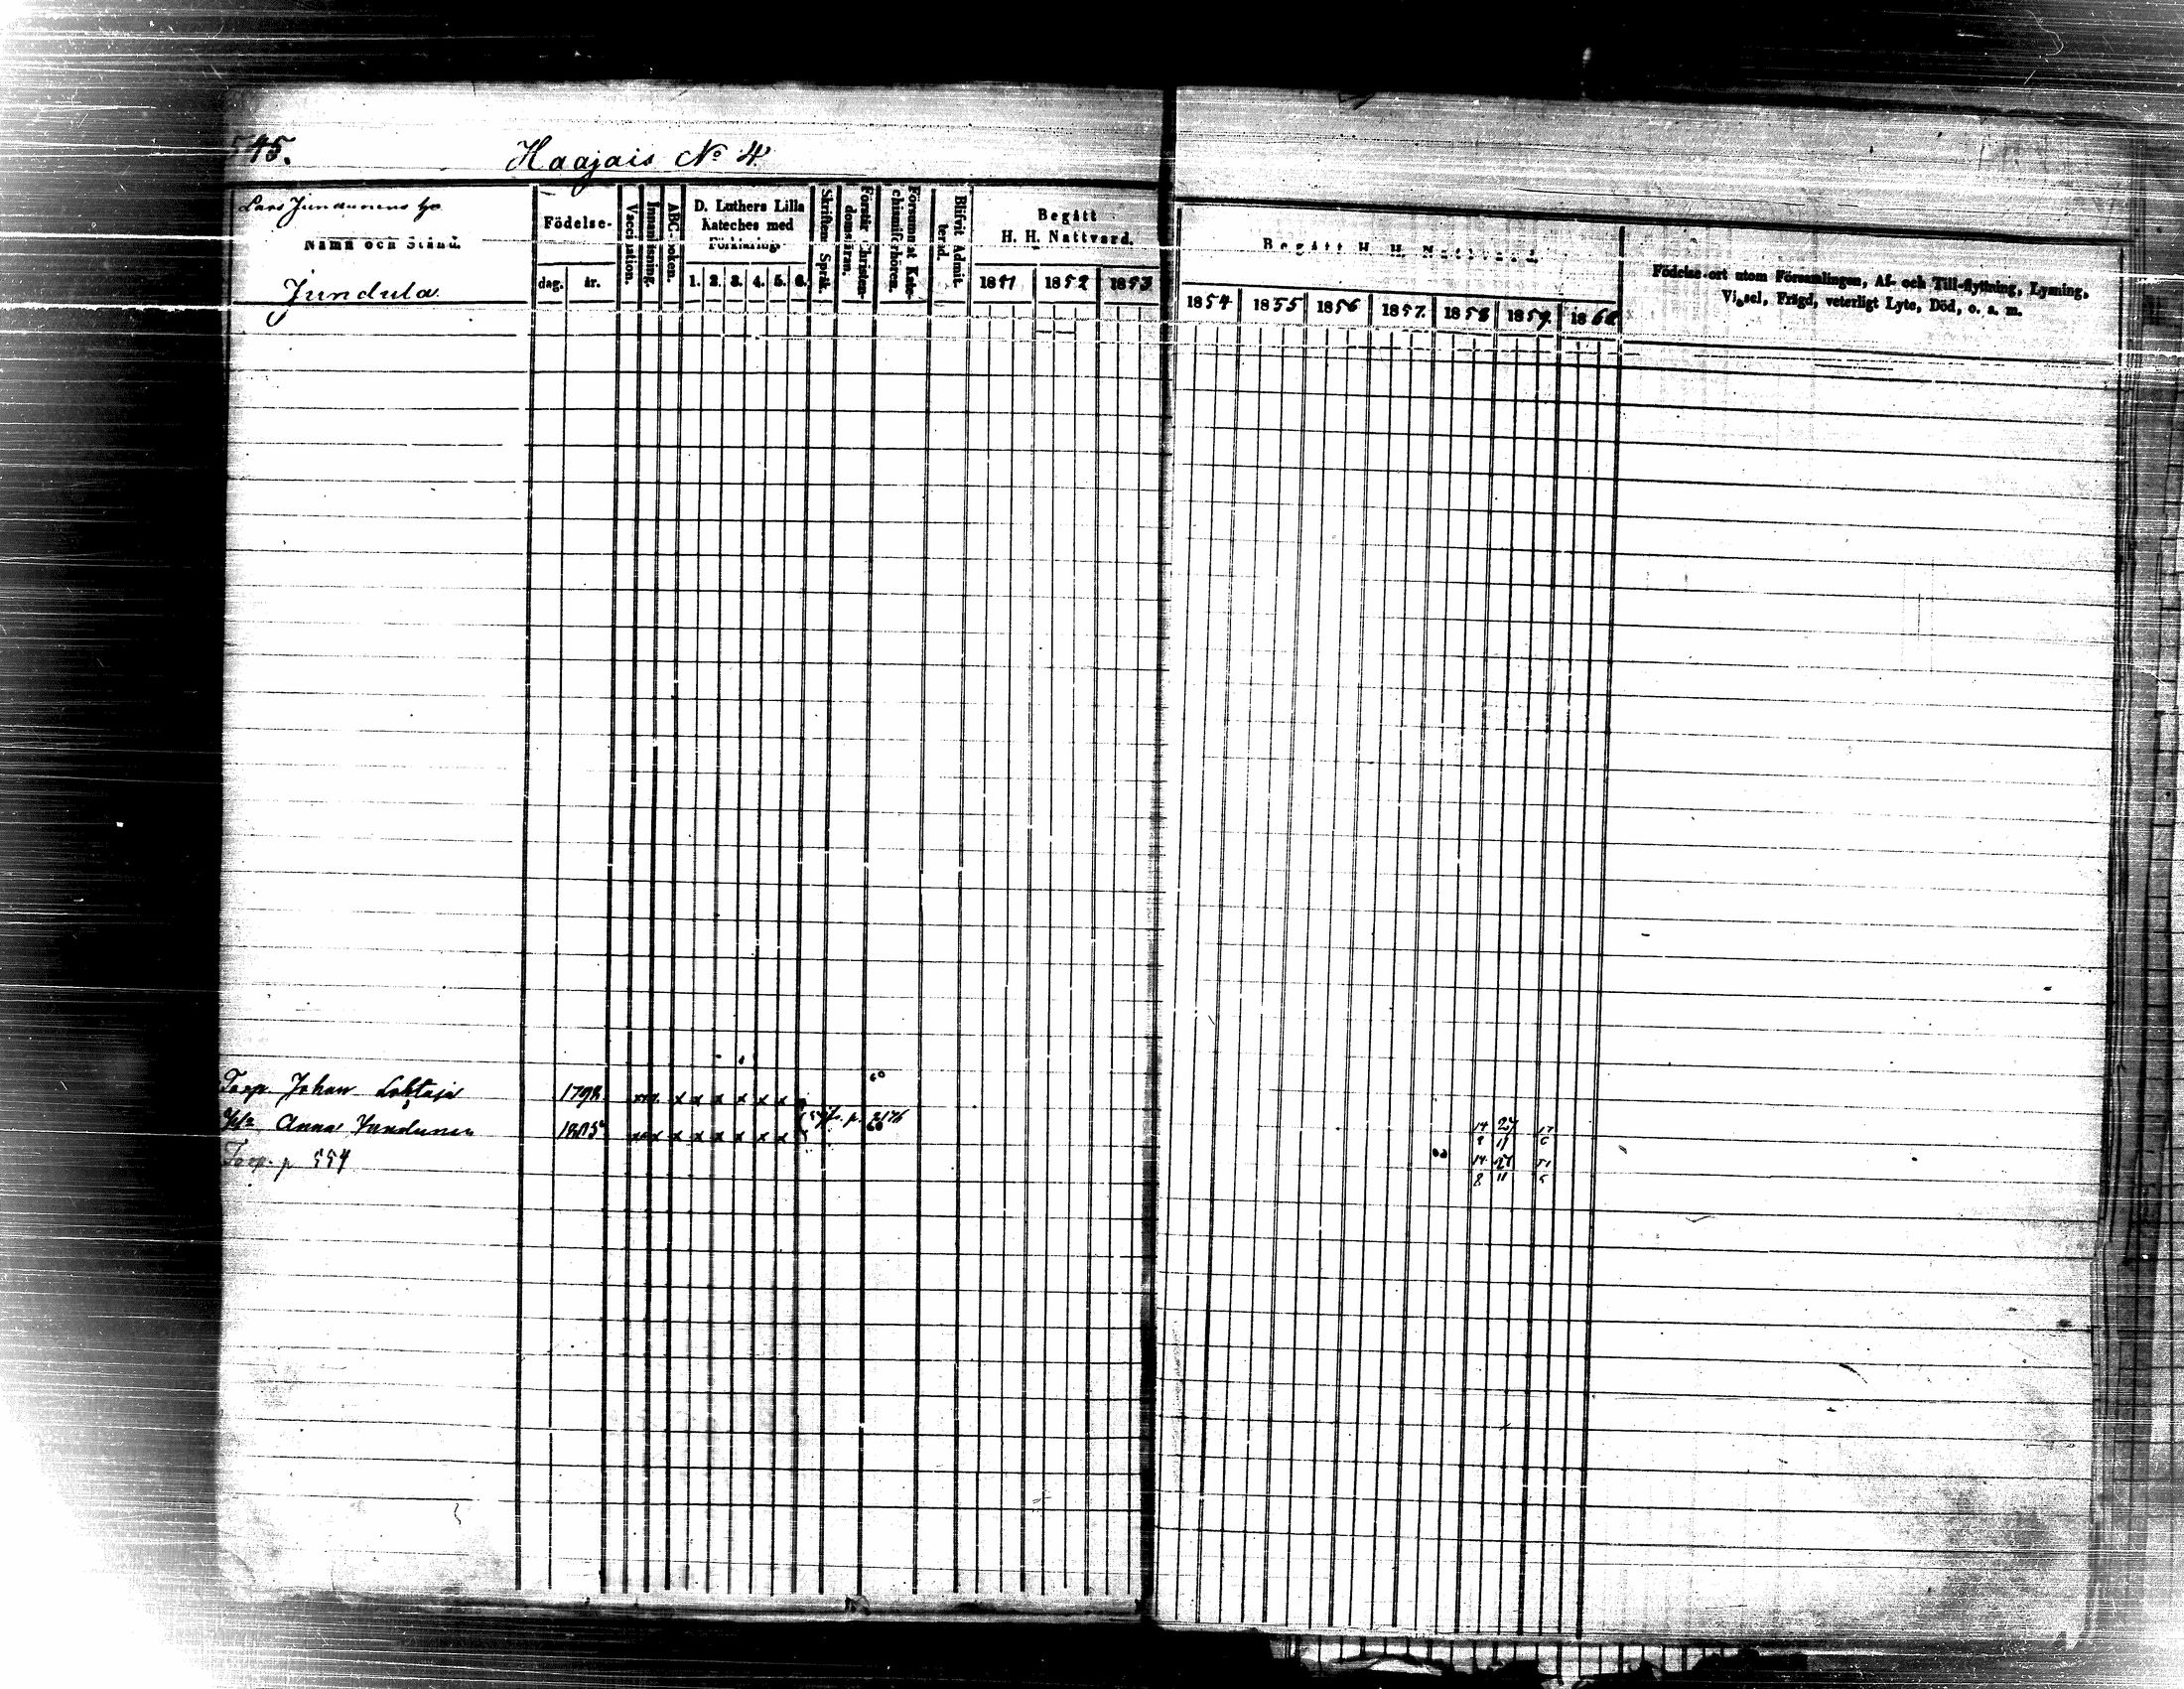 545.
Haajais No 4.
Lars Jundunens
Namn och Stånd.
Jundula
Födelse-
dag. år.
Vaccination.
Innanläsning.
ABC-boken.
D. Luthers Lilla
Kateches med
Förklaring.
1. 2. 3. 4. 5. 6.
Skriftens Språk.
Förstår Christen-
domsläran.
Försummat Kate-
chismiförhören.
Blifvit Admit-
terad.
Begått
H. H. Nattvard.
1851 1852 1853
Begått H. H. Nattvard.
1854 1855 1856 1857. 1858 1859. 1860
Födelse-ort utom Församlingen, Af- och Till-flyttning, Lysning,
Vigsel, Frägd, veterligt Lyte, Död, o. s. m.
Torp. Johan Lohtaja 1792. x x x x x x
Anna Jundunen 1805 x x x x x x
14 27
8 11
Torp. p 554
14 27
8 11